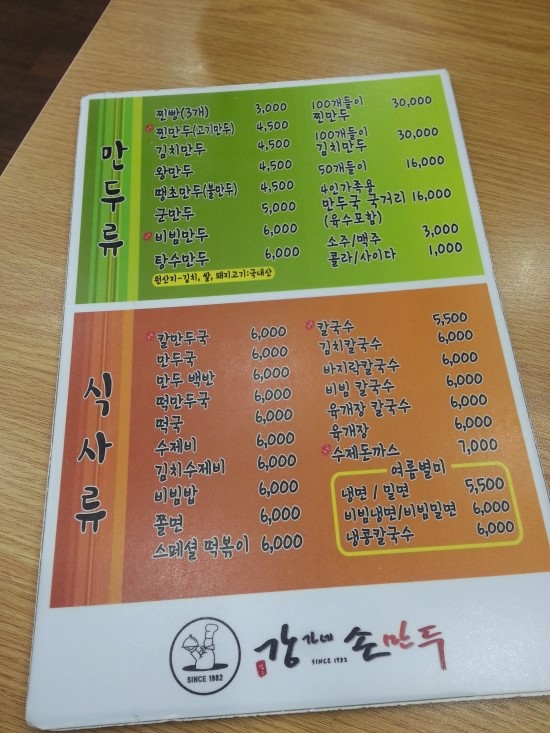 만두류
찐빵(3개) 3,000
찐만두(고기만두) 4,500
김치만두 4,500
왕만두 4,500
땡초만두(불만두) 4,500
군만두 5,000
비빔만두 6,000
탕수만두 6,000
원산지-김치, 쌀, 돼지고기:국내산
100개들이
찐만두 30,000
100개들이
김치만두 30,000
50개들이 16,000
4인가족용
만두국 국거리 16,000
(육수포함)
소주/맥주 3,000
콜라/사이다 1,000
식사류
칼만두국 6,000
만두국 6,000
만두 백반 6,000
떡만두국 6,000
떡국 6,000
수제비 6,000
김치수제비 6,000
비빔밥 6,000
쫄면 6,000
스페셜 떡볶이 6,000
칼국수 5,500
김치칼국수 6,000
바지락칼국수 6,000
비빔 칼국수 6,000
육개장 칼국수 6,000
육개장 6,000
수제돈까스 7,000
여름별미
냉면 / 밀면 5,500
비빔냉면/비빔밀면 6,000
냉콩칼국수 6,000
SINCE 1982
강가네 손만두
SINCE 1982